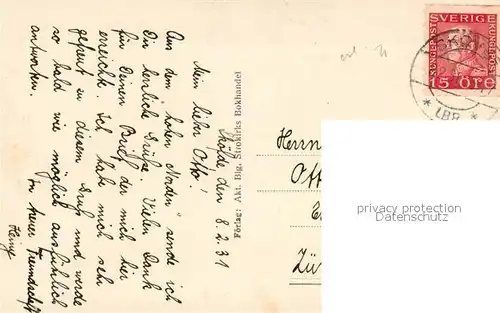 Skövde den 8.2.31
Mein lieber Otto!
Aus dem hohen Norden sende ich
Dir herrliche Grüße. Vielen Dank
für Deinen Brief der mich hier
erreichte. Ich habe mich sehr
gefreut zu diesem Gruß und werde
so bald wie möglich ausführlich
antworten.
In treuer Freundschaft
Heinz
Förlag: Akt. Blg. Strokirks Bokhandel
Herrn
Ott
Zü
SVERIGE
KUNGL.POST
KUNGL.POST
15 ÖRE
SKÖV
LBR
privacy protection
Datenschutz